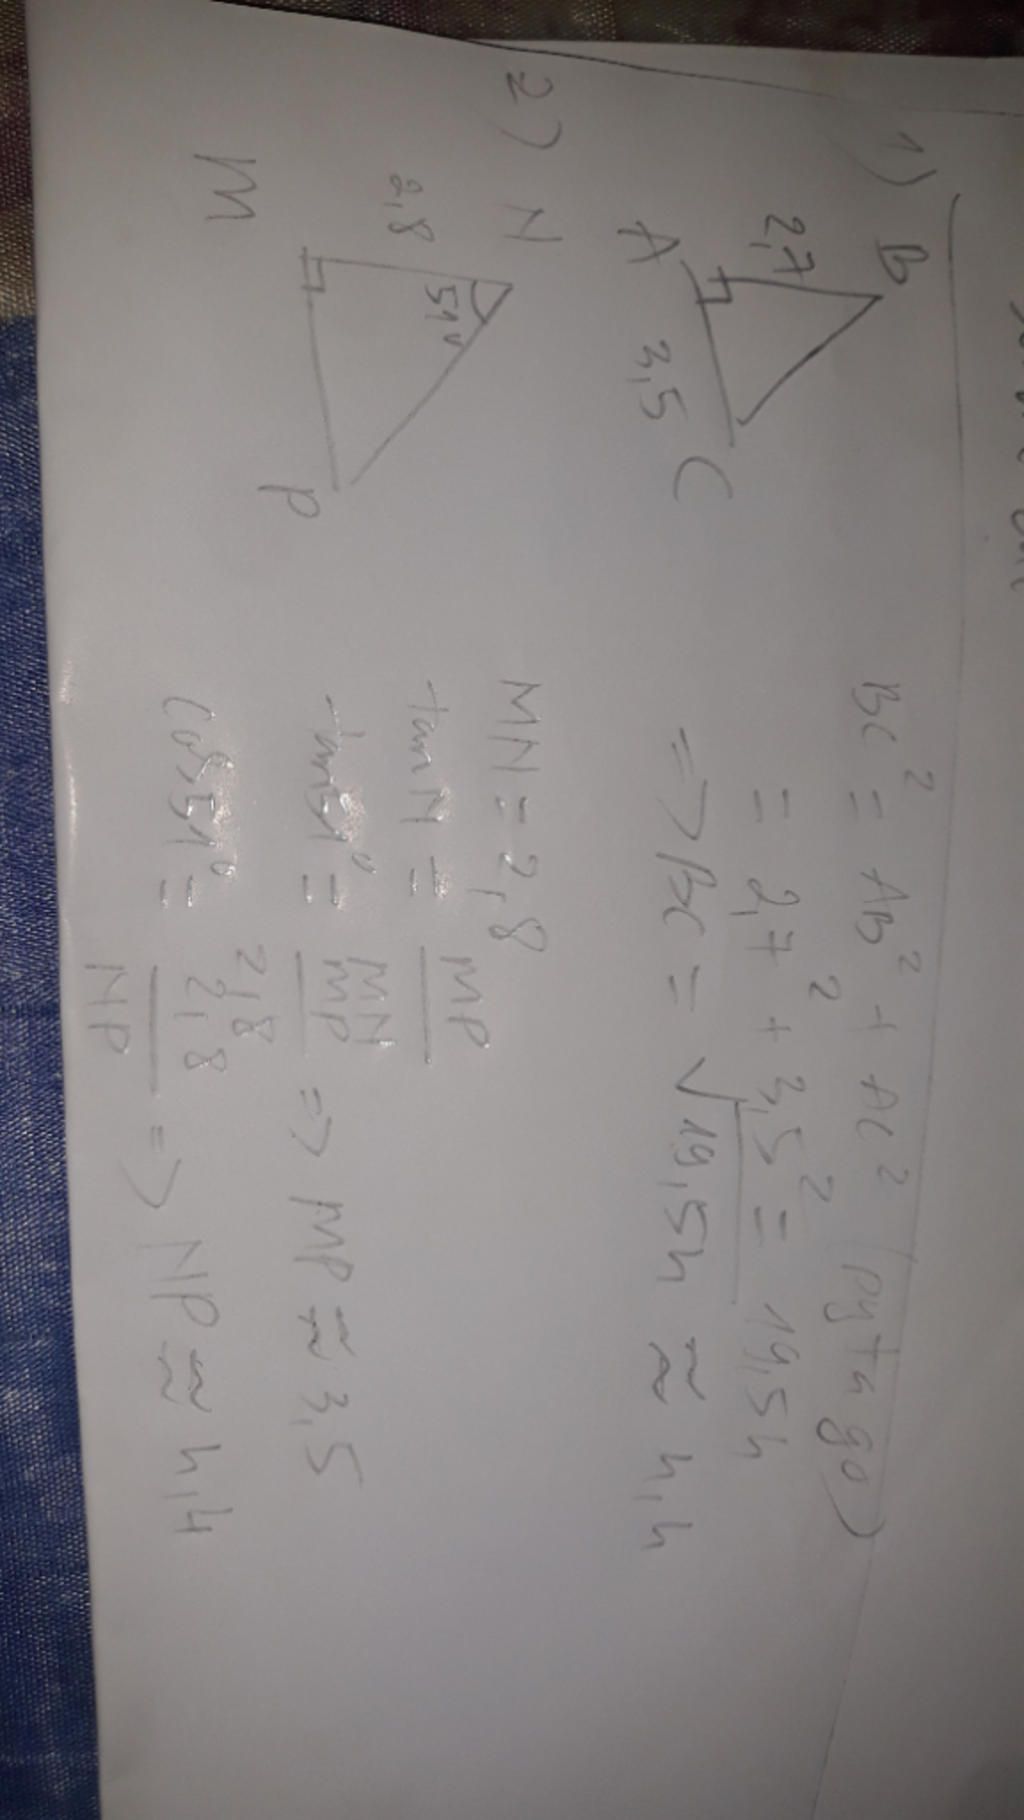 1)
B
2,7
A
3,5
C
BC² = AB² + AC² (pytago)
= 2,7² + 3,5² = 19,54
=> BC = √19,54 ≈ 4,4
2)
N
2,8
51°
M
P
MN = 2,8
tan N = MP/MN
tan 51° = MP/2,8 => MP ≈ 3,5
cos 51° = 2,8/NP => NP ≈ 4,4